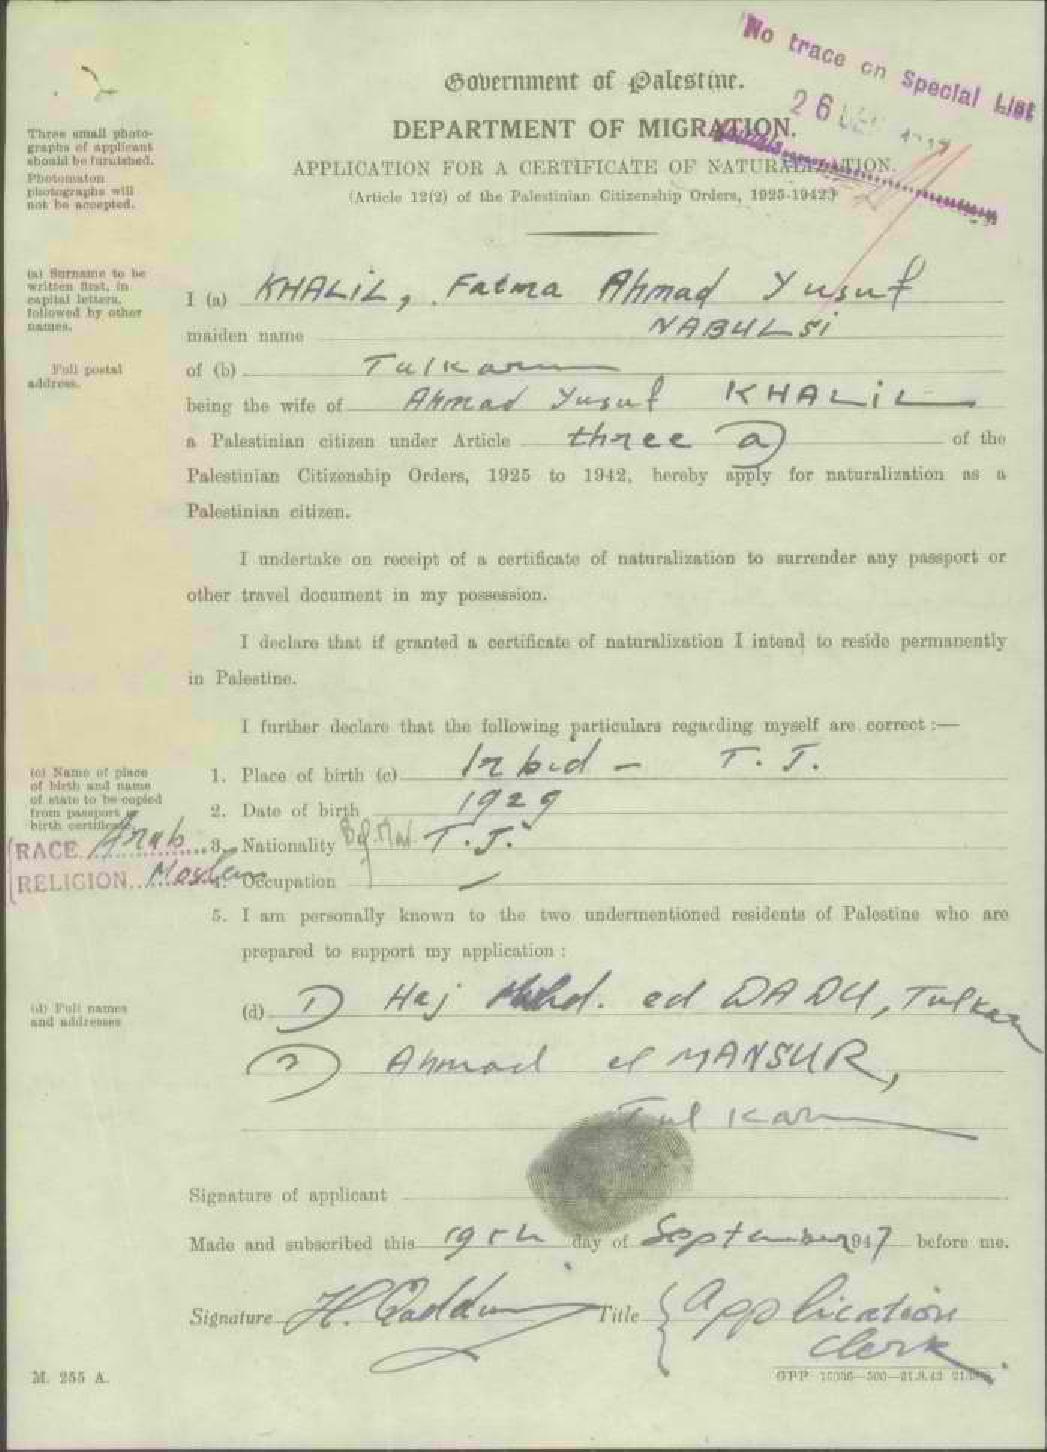 No trace on Special List
26 DEC
Government of Palestine.
DEPARTMENT OF MIGRATION.
APPLICATION FOR A CERTIFICATE OF NATURALIZATION.
(Article 12(2) of the Palestinian Citizenship Orders, 1925-1942)
Three small photo-
graphs of applicant
should be furnished.
Photomaton
photographs will
not be accepted.
(a) Surname to be
written first, in
capital letters,
followed by other
names.
I (a) KHALIL, Fatma Ahmad Yusuf
maiden name NABULSI
Full postal
address.
of (b) Tulkarm
being the wife of Ahmad Yusuf KHALIL
a Palestinian citizen under Article three a) of the
Palestinian Citizenship Orders, 1925 to 1942, hereby apply for naturalization as a
Palestinian citizen.
I undertake on receipt of a certificate of naturalization to surrender any passport or
other travel document in my possession.
I declare that if granted a certificate of naturalization I intend to reside permanently
in Palestine.
I further declare that the following particulars regarding myself are correct :—
(c) Name of place
of birth and name
of state to be copied
from passport or
birth certificate
1. Place of birth (c) Irbid - T. J.
2. Date of birth 1929
3. Nationality Bef. Mar. T.J.
4. Occupation
RACE Arab
RELIGION Moslem
5. I am personally known to the two undermentioned residents of Palestine who are
prepared to support my application :
(d) Full names
and addresses
(d) 1) Haj Mhd. ed DADU, Tulkarm
2) Ahmad el MANSUR,
Tulkarm
Signature of applicant
Made and subscribed this 19th day of September 1947 before me.
Signature H. Qaddumi Title Application
clerk.
M. 255 A.
GPP 500—21.8.42